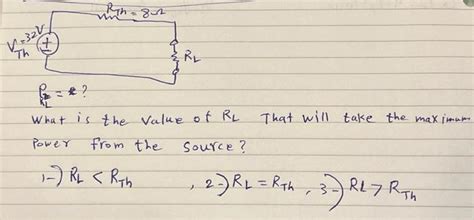 RTh = 8Ω
VTh = 32V
RL
RL = ?
What is the value of RL That will take the maximum
Power from the source?
1-) RL < RTh , 2-) RL = RTh , 3-) RL > RTh